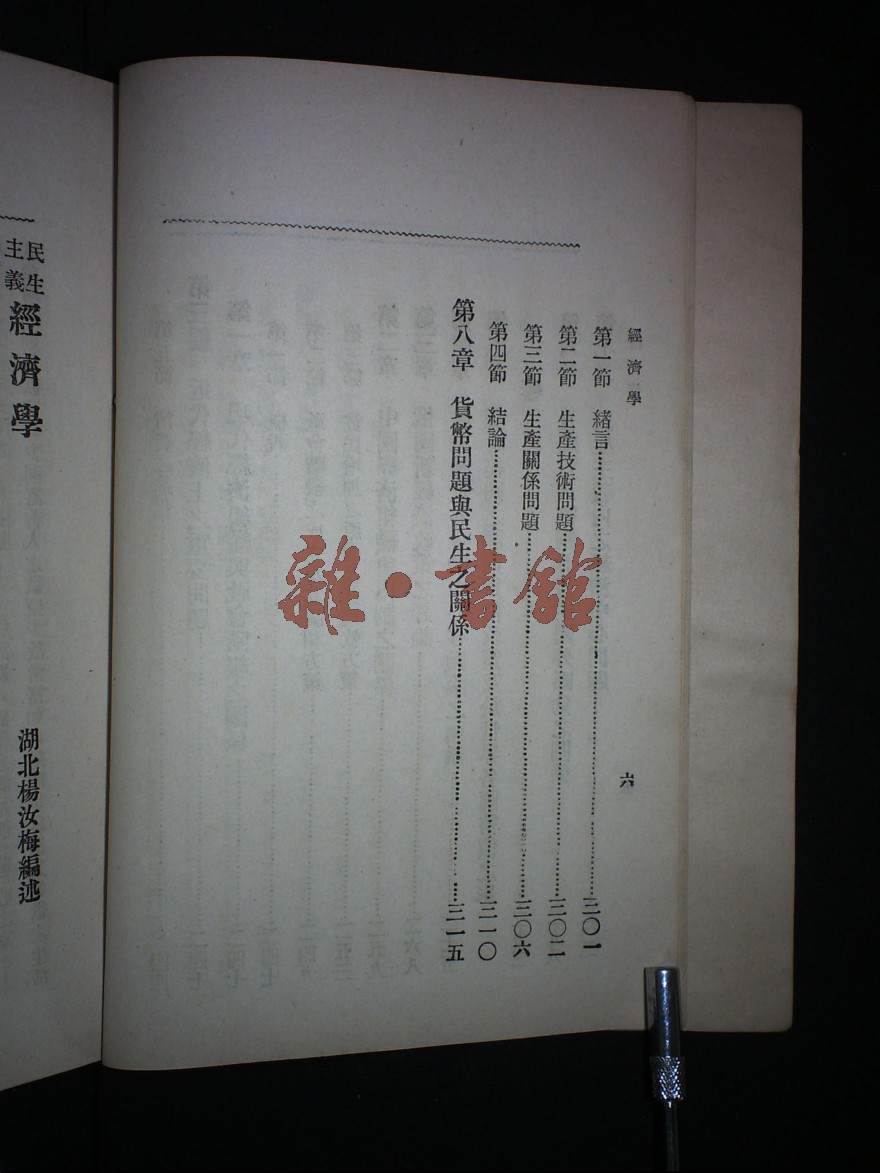 經濟學
六
第一節 緒言……三〇一
第二節 生產技術問題……三〇二
第三節 生產關係問題……三〇六
第四節 結論……三一〇
第八章 貨幣問題與民生之關係……三一五
民生
主義
經濟學
湖北楊汝梅編述
雜·書館